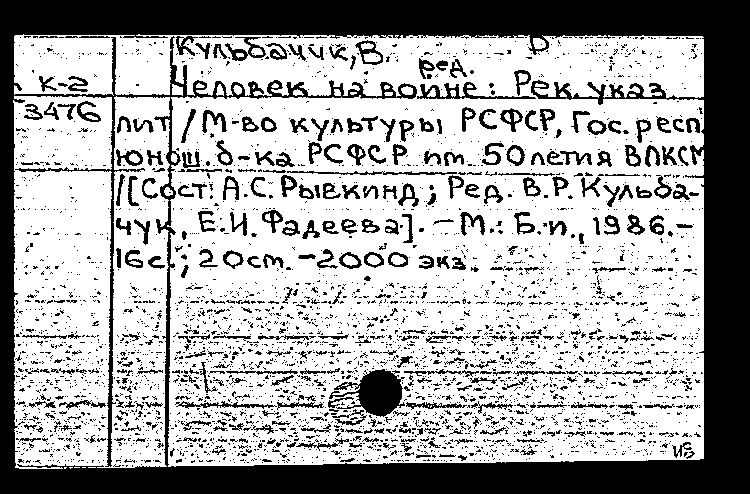 Кульбачук, В. Р
ред.
К-2 Человек на войне: Рек. указ.
3476 лит / М-во культуры РСФСР, Гос. респ.
юнош. б-ка РСФСР им. 50летия ВЛКСМ
/[Сост. А.С. Рывкинд; Ред. В.Р. Кульба-
чук, Е.И. Фадеева]. – М.: Б.и., 1986.–
16с.; 20см. – 2000 экз.